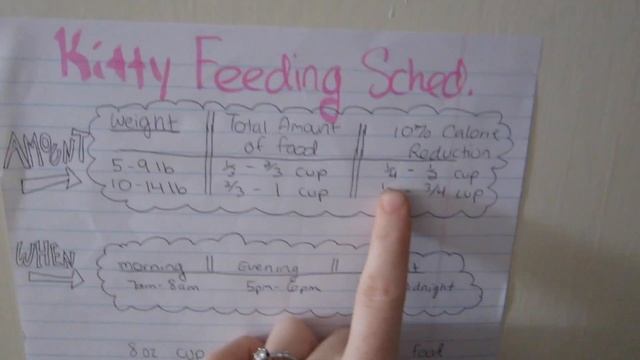 Kitty Feeding Sched.
AMOUNT
Weight Total Amount of food 10% Calorie Reduction
5-9 lb 1/2 - 2/3 cup 1/4 - 1/2 cup
10-14 lb 2/3 - 1 cup 3/4 cup
WHEN
morning Evening
7am-8am 5pm-6pm
8 oz cup food